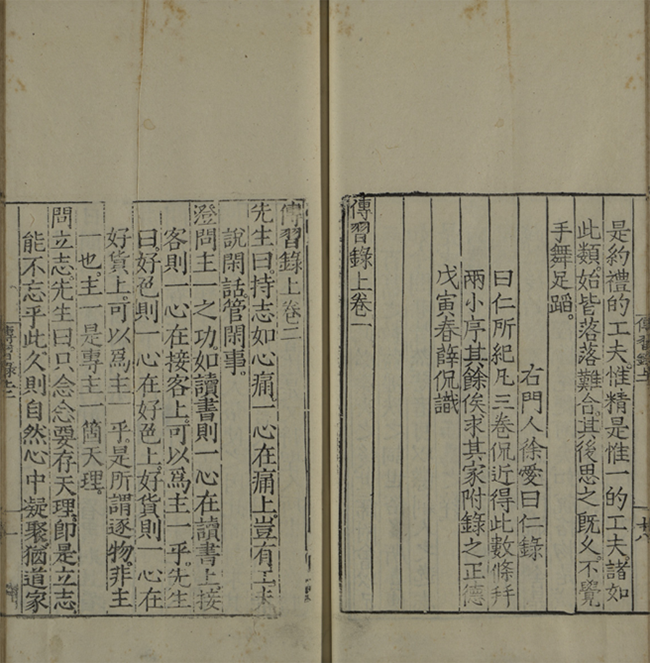 是約禮的工夫惟精是惟一的工夫諸如
此類始皆落落難合其後思之既久不覺
手舞足蹈。
右門人徐愛曰仁錄
曰仁所紀凡三卷侃近得此數條并
兩小序其餘俟求其家附錄之正德
戊寅春薛侃識
傳習錄上卷一
傳習錄上卷二
先生曰持志如心痛一心在痛上豈有工夫
說閑話管閑事。
澄問主一之功如讀書則一心在讀書上接
客則一心在接客上可以為主一乎先生
曰好色則一心在好色上好貨則一心在
好貨上可以為主一乎是所謂逐物非主
一也主一是專主一箇天理。
問立志先生曰只念念要存天理即是立志
能不忘乎此久則自然心中凝聚猶道家